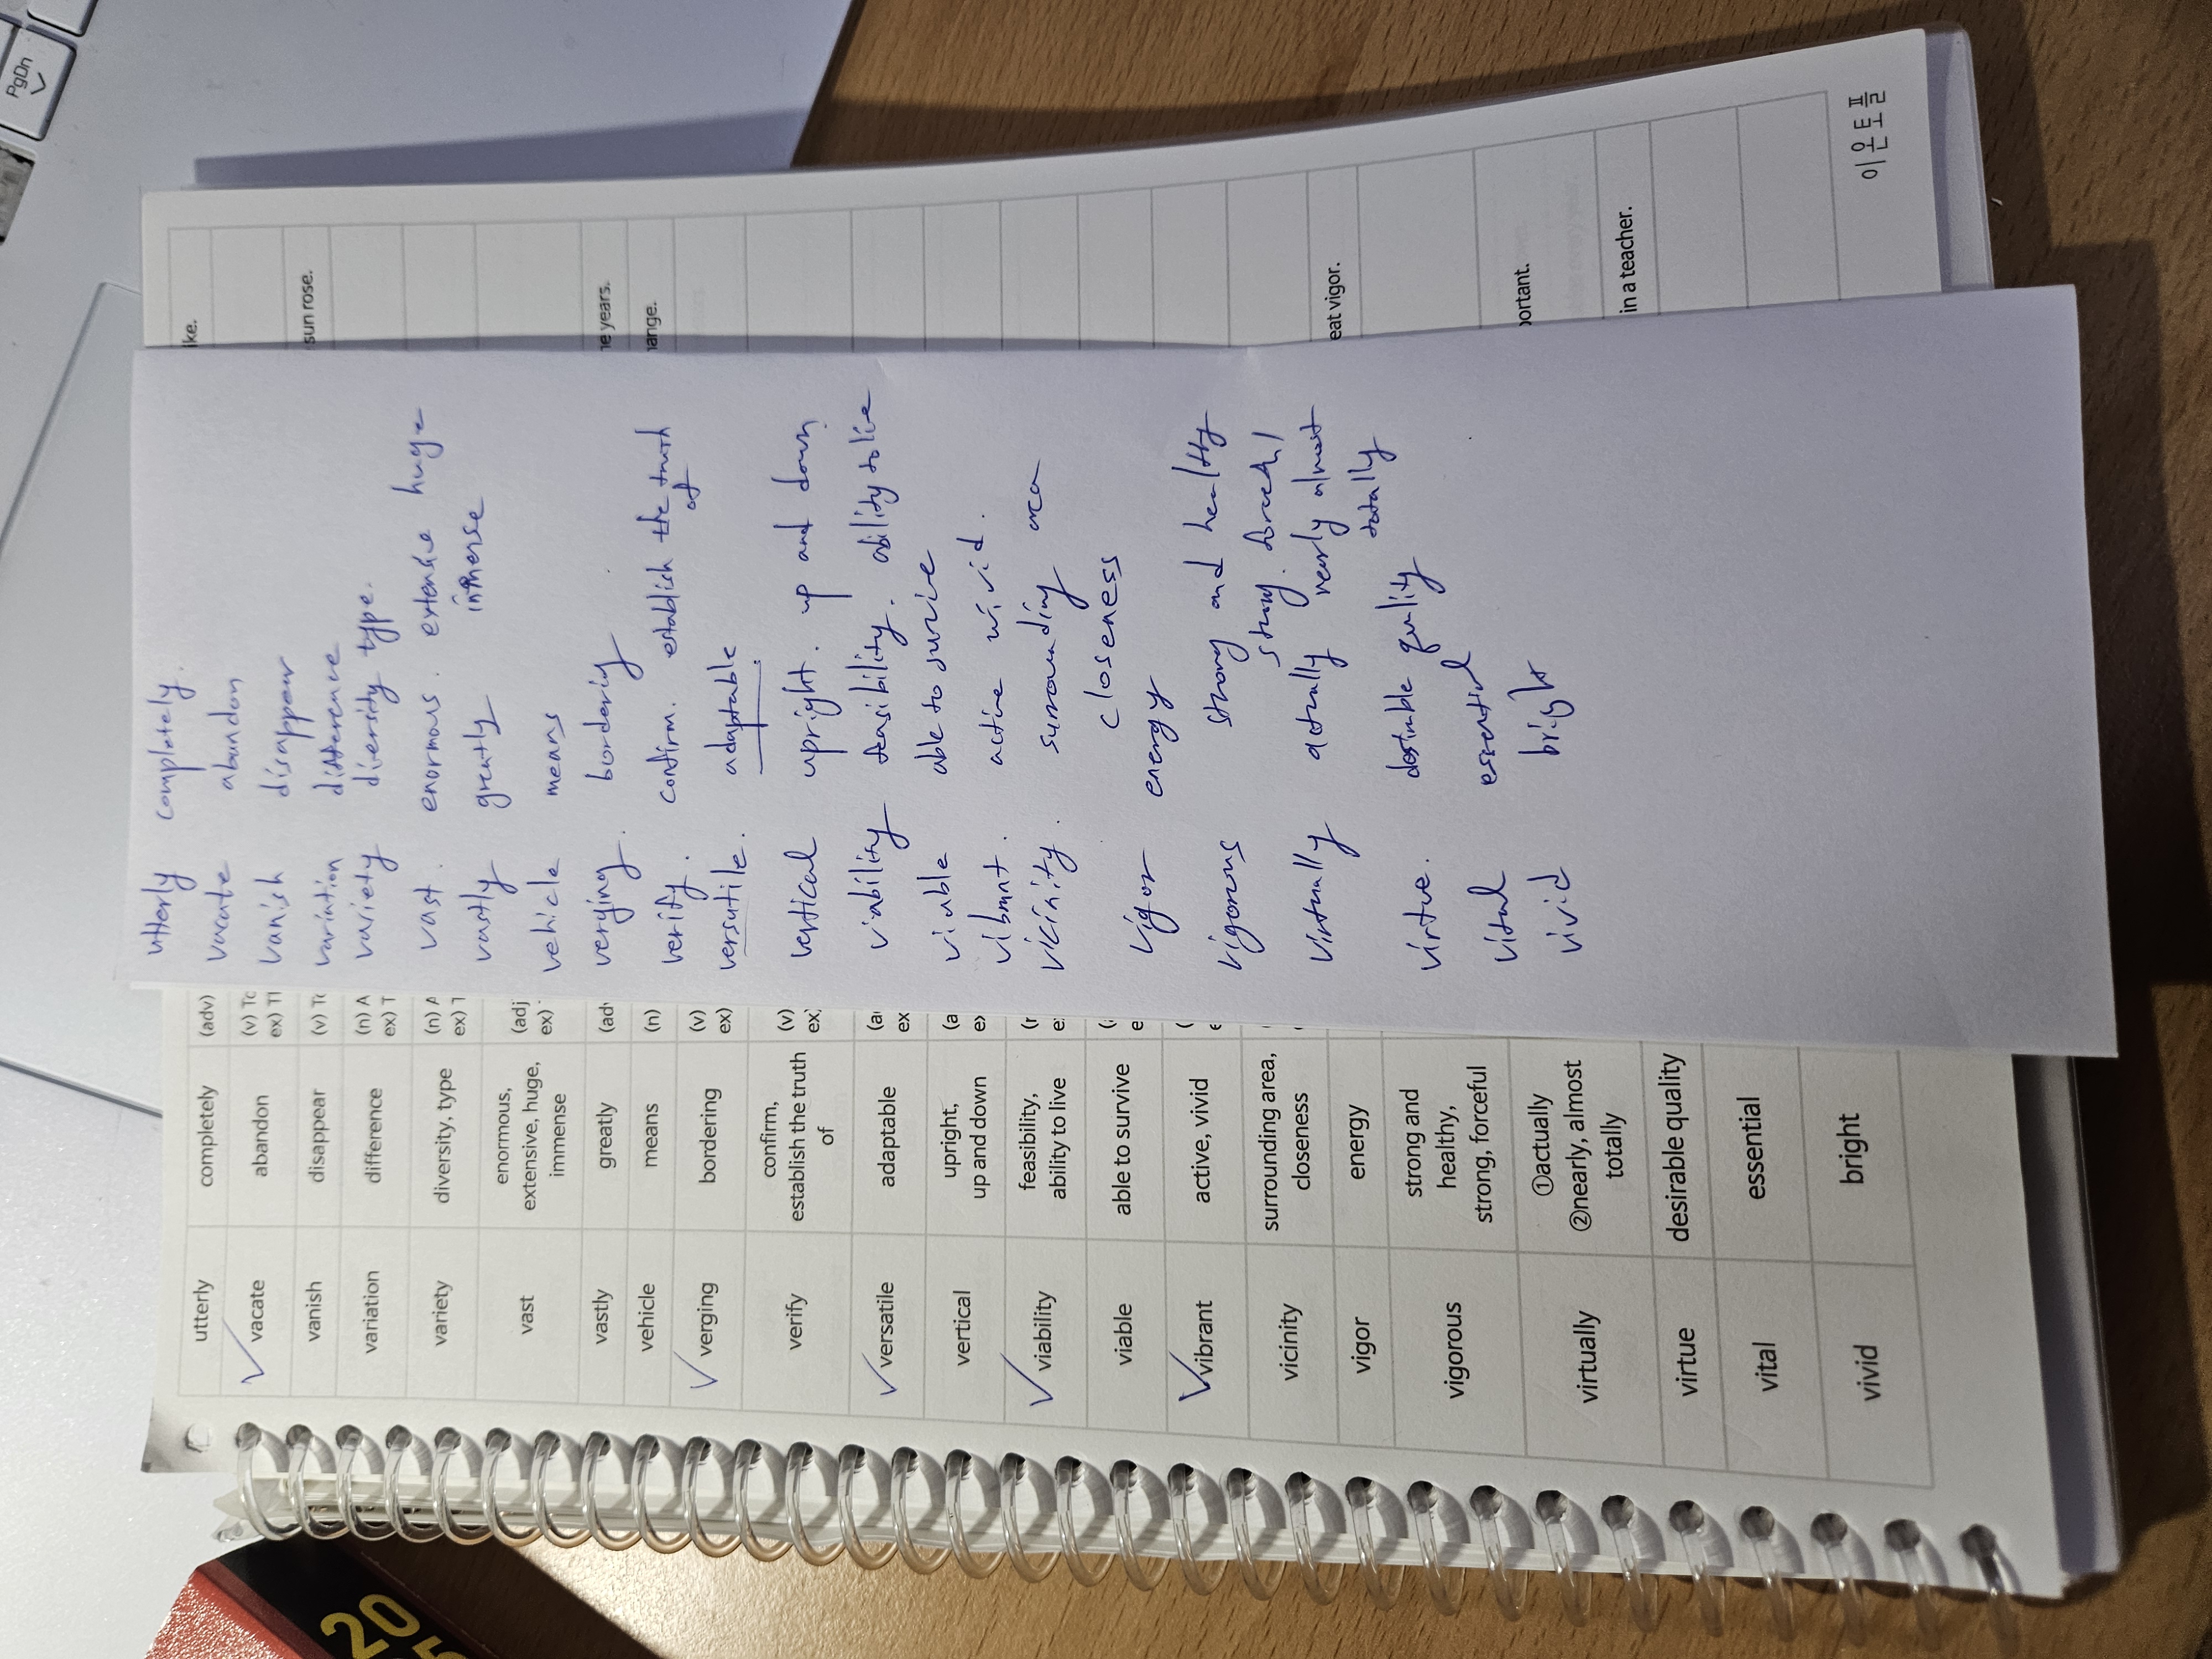 PgDn
utterly completely (adv)
vacate abandon (v) To
ex) Th
vanish disappear (v) To
variation difference (n) A
ex) T
variety diversity, type (n) A
ex) T
vast enormous,
extensive, huge,
immense (adj
ex)
vastly greatly (ad
vehicle means (n)
verging bordering (v)
ex)
verify confirm,
establish the truth
of (v)
ex
versatile adaptable (a
ex
vertical upright,
up and down (a
e
viability feasibility,
ability to live
viable able to survive
vibrant active, vivid
vicinity surrounding area,
closeness
vigor energy
vigorous strong and
healthy,
strong, forceful
virtually ①actually
②nearly, almost
totally
virtue desirable quality
vital essential
vivid bright
utterly completely.
vacate abandon
vanish disappear
variation difference
variety diversity type.
vast. enormous. extensive huge
immense
vastly greatly
vehicle means
verging. bordering
verify. confirm. establish the truth
of
versutile. adaptable
vertical upright. up and down
viability feasibility. ability to live
viable able to survive
vibrant. active vivid.
vicinity. surrounding area
closeness
vigor energy
vigorous strong and healthy
strong. forceful
virtually actually nearly almost
totally
virtue. desirable quality
vital essential
vivid bright
ke.
sun rose.
e years.
ange.
eat vigor.
ortant.
in a teacher.
이온토플
20